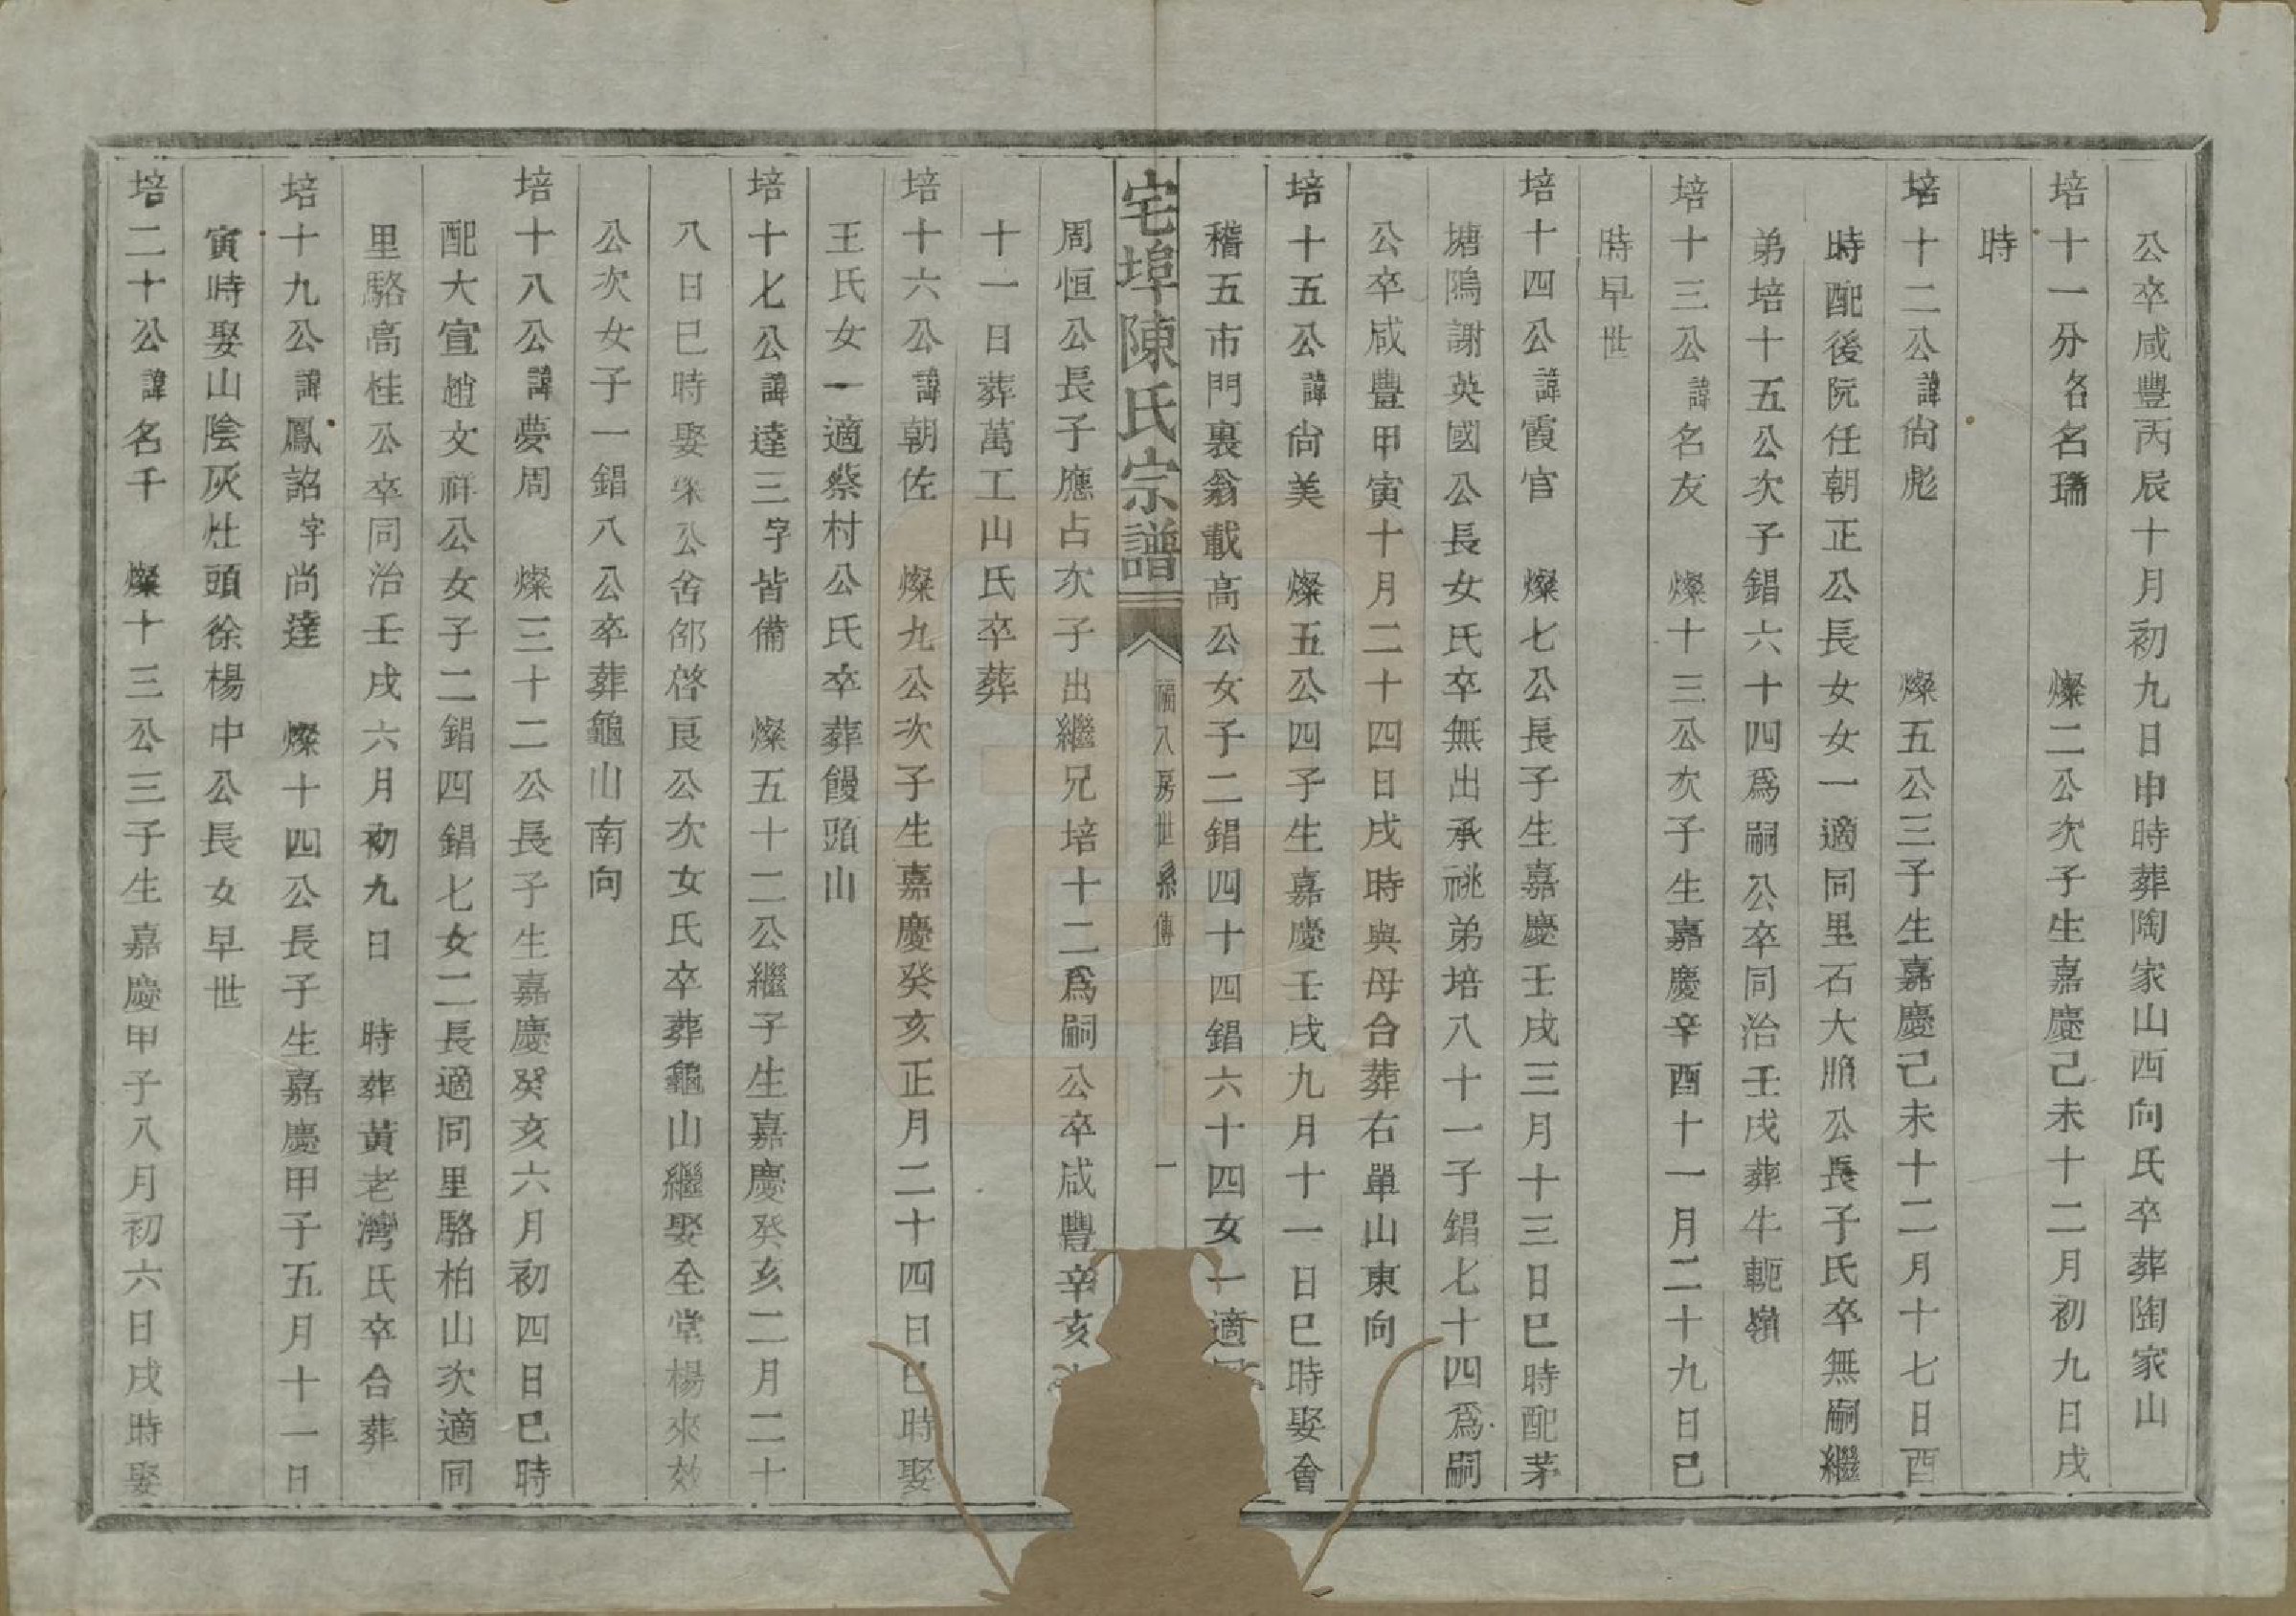 公卒咸豐丙辰十月初九日申時葬陶家山西向氏卒葬陶家山
培十一分名名瑞 燦二公次子生嘉慶己未十二月初九日戌
時
培十二公諱尙彪 燦五公三子生嘉慶己未十二月十七日酉
時配後阮任朝正公長女女一適同里石大順公長子氏卒無嗣繼
弟培十五公次子錩六十四爲嗣公卒同治壬戌葬牛軛嶺
培十三公諱名友 燦十三公次子生嘉慶辛酉十一月二十九日巳
時早世
培十四公諱霞官 燦七公長子生嘉慶壬戌三月十三日巳時配茅
塘隝謝英國公長女氏卒無出承祧弟培八十一子錩七十四爲嗣
公卒咸豐甲寅十月二十四日戌時與母合葬右單山東向
培十五公諱尙美 燦五公四子生嘉慶壬戌九月十一日巳時娶會
稽五市門裏翁載高公女子二錩四十四錩六十四女一適
宅埠陳氏宗譜
福八房世系傳 一
周恒公長子應占次子出繼兄培十二爲嗣公卒咸豐辛亥
十一日葬萬工山氏卒葬
培十六公諱朝佐 燦九公次子生嘉慶癸亥正月二十四日巳時娶
王氏女一適蔡村公氏卒葬饅頭山
培十七公諱達三字皆備 燦五十二公繼子生嘉慶癸亥二月二十
八日巳時娶梁公舍邵啓良公次女氏卒葬龜山繼娶全堂楊來效
公次女子一錩八公卒葬龜山南向
培十八公諱夢周 燦三十二公長子生嘉慶癸亥六月初四日巳時
配大宣趙文祥公女子二錩四錩七女二長適同里駱柏山次適同
里駱高桂公卒同治壬戌六月初九日 時葬黃老灣氏卒合葬
培十九公諱鳳詔字尚達 燦十四公長子生嘉慶甲子五月十一日
寅時娶山陰灰灶頭徐楊中公長女早世
培二十公諱名千 燦十三公三子生嘉慶甲子八月初六日戌時娶